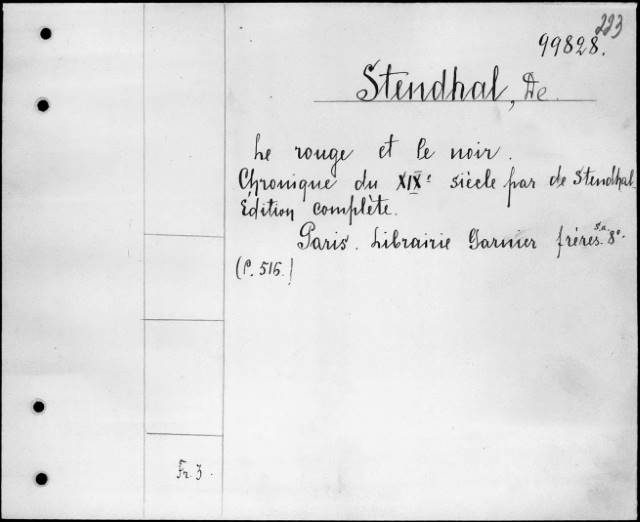 223
99828.
Stendhal, De.
Le rouge et le noir.
Chronique du XIXe siècle par de Stendhal
Édition complète.
Paris. Librairie Garnier frères. s.a. 8°.
(P. 515.)
Fr. 3.